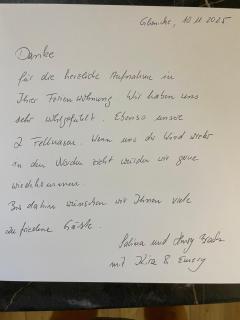 10.11.2025
Danke
für die herzliche Aufnahme in
Ihrer Ferienwohnung. Wir haben uns
sehr wohlgefühlt. Ebenso unsere
2 Fellnasen. Wenn uns der Wind wieder
in den Norden weht würden wir gerne
wiedkommen.
Bis dahin wünschen wir Ihnen viele
zufriedene Gäste.
Sabina und
mit Kira & Emery